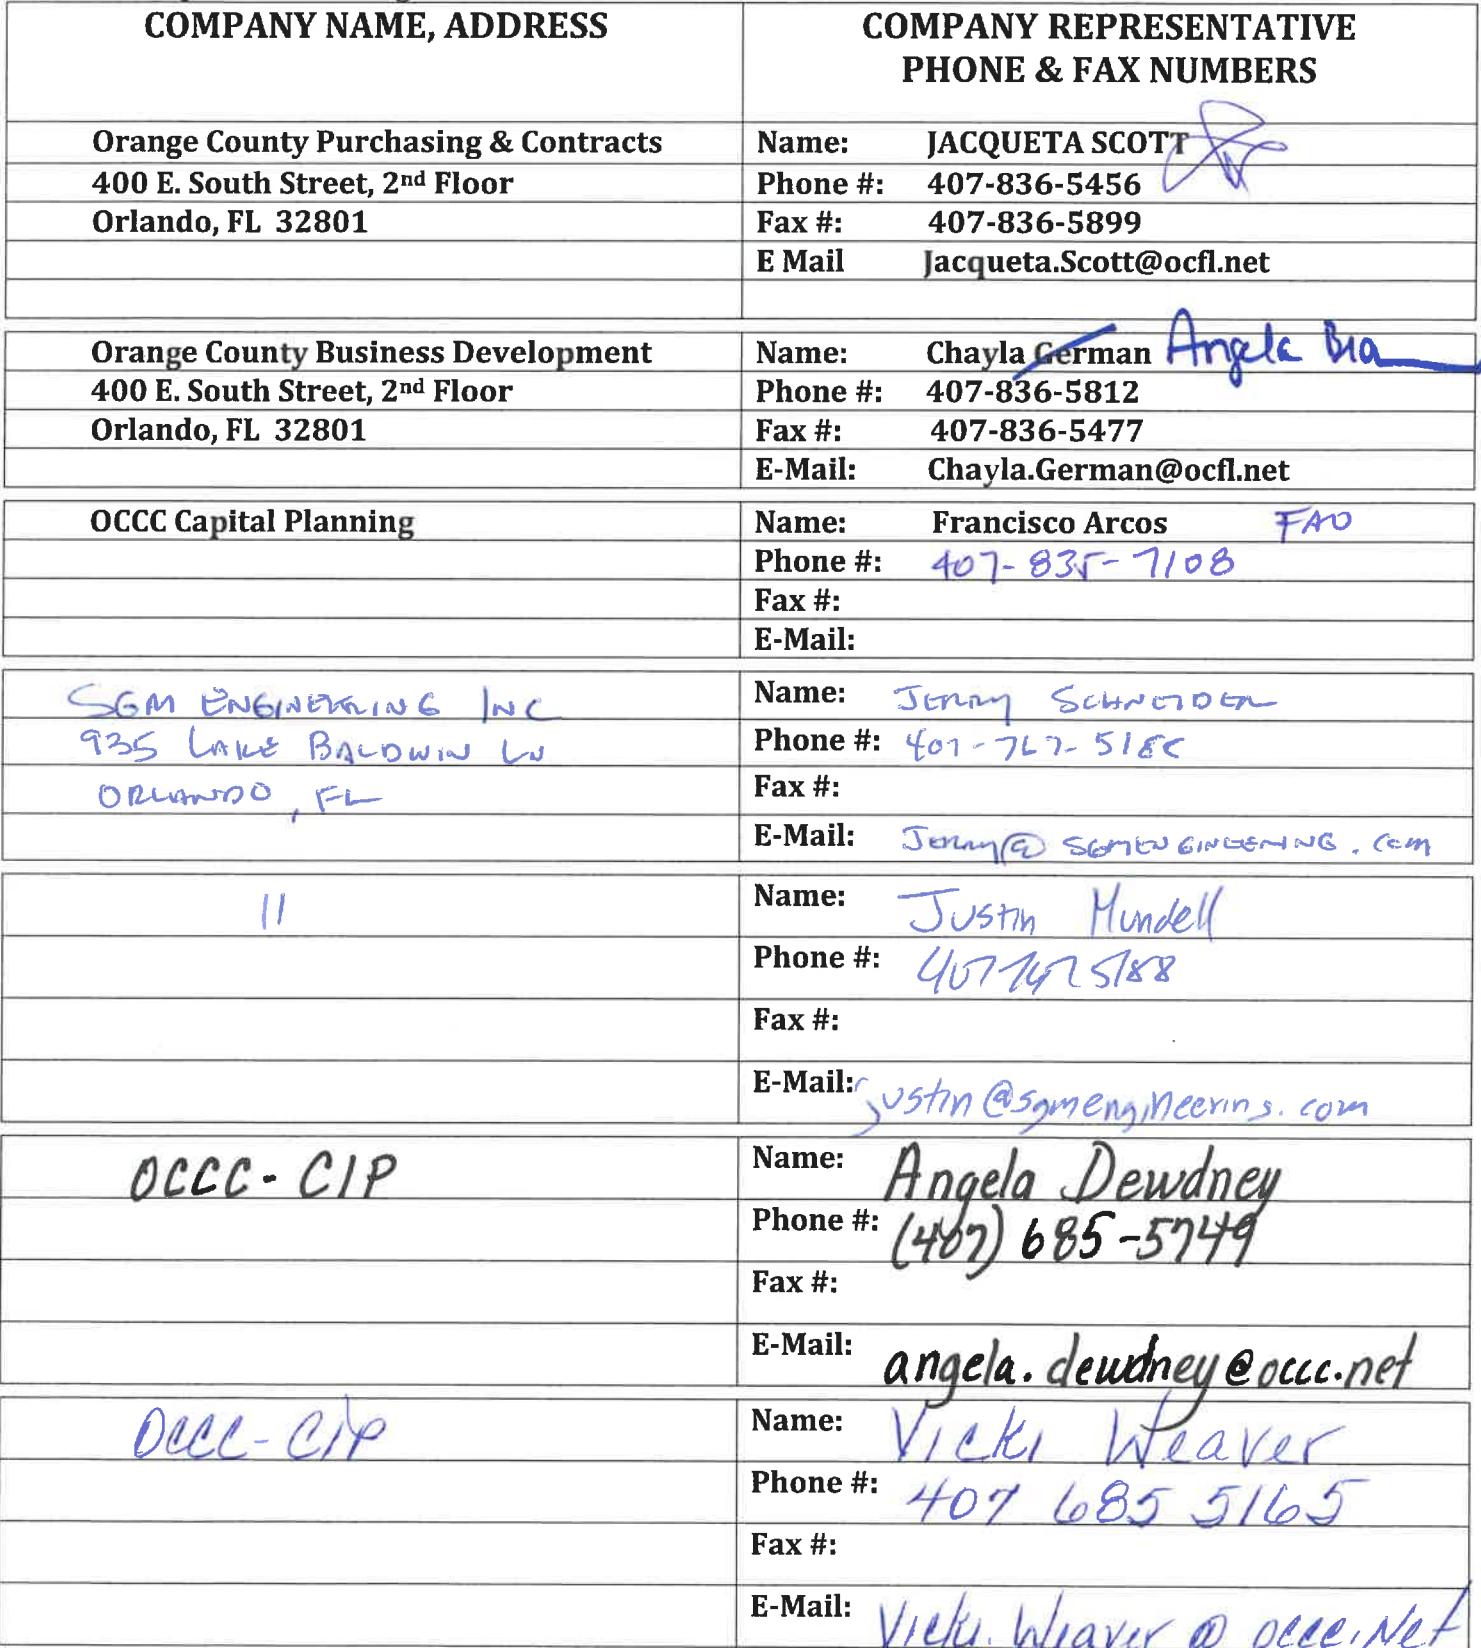 COMPANY NAME, ADDRESS
COMPANY REPRESENTATIVE
PHONE & FAX NUMBERS
Orange County Purchasing & Contracts
Name: JACQUETA SCOTT
400 E. South Street, 2nd Floor
Phone #: 407-836-5456
Orlando, FL 32801
Fax #: 407-836-5899
E Mail Jacqueta.Scott@ocfl.net
Orange County Business Development
Name: Chayla German Angela
400 E. South Street, 2nd Floor
Phone #: 407-836-5812
Orlando, FL 32801
Fax #: 407-836-5477
E-Mail: Chayla.German@ocfl.net
OCCC Capital Planning
Name: Francisco Arcos FAO
Phone #: 407-835-7108
Fax #:
E-Mail:
SGM ENGINEERING INC
Name: JERRY SCHNEIDER
935 LAKE BALDWIN LN
Phone #:
ORLANDO, FL
Fax #:
E-Mail: JERRY@SGMENGINEERING.COM
11
Name: Justin Mundell
Phone #:
Fax #:
E-Mail: justin@sgmengineering.com
OCCC - CIP
Name: Angela Dewdney
Phone #: (407) 685-5749
Fax #:
E-Mail: angela.dewdney@occc.net
OCCC - CIP
Name: Vicki Weaver
Phone #: 407 685 5165
Fax #:
E-Mail: Vicki.Weaver@occc.Net